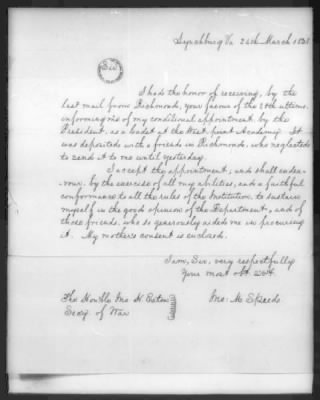 Lynchburg Va 26th March 1831.
I had the honor of receiving, by the
last mail from Richmond, your favor of the 28th ultimo,
informing me of my conditional appointment by the
President, as a Cadet at the West point Academy. It
was deposited with a friend in Richmond, who neglected
to send it to me until yesterday.
I accept the appointment; and shall endea-
vour, by the exercise of all my abilities, and a faithful
conformance to all the rules of the Institution, to sustain
myself in the good opinion of the Department, and of
those friends, who so generously aided me in procuring
it. My mother's consent is enclosed.
I am, Sir, very respectfully
Your most obt. Svt.
Jno. M. Speed
The Honble Jno H. Eaton
Secy. of War